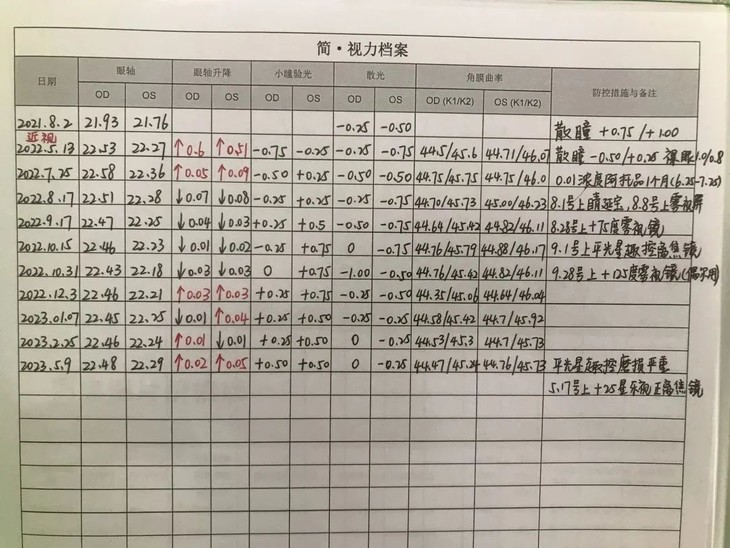 简·视力档案
日期 眼轴 眼轴升降 小瞳验光 散光 角膜曲率 防控措施与备注
OD OS OD OS OD OS OD OS OD (K1/K2) OS (K1/K2)
2021.8.2 21.93 21.76 -0.25 -0.50 散瞳 +0.75/+1.00
近视
2022.5.13 22.53 22.27 ↑0.6 ↑0.51 -0.75 -0.25 -0.25 -0.75 44.5/45.6 44.71/46.07 散瞳 -0.50/+0.25 裸眼1.0/0.8
2022.7.25 22.58 22.36 ↑0.05 ↑0.09 -0.50 +0.25 -0.50 -0.50 44.75/45.75 44.75/46.0 0.01浓度阿托品1个月(6.25-7.25)
2022.8.17 22.51 22.28 ↓0.07 ↓0.08 -0.25 +0.25 -0.25 -0.75 44.70/45.73 45.00/46.23 8.1号上睛延宝,8.8号上雾视屏
2022.9.17 22.47 22.25 ↓0.04 ↓0.03 +0.25 +0.5 -0.50 -0.75 44.64/45.42 44.82/46.11 8.28号上+75度雾视镜
2022.10.15 22.46 22.23 ↓0.01 ↓0.02 -0.25 +0.75 0 -0.75 44.76/45.79 44.88/46.17 9.1号上平光星趣控离焦镜
2022.10.31 22.43 22.18 ↓0.03 ↓0.03 0 +0.75 -1.00 -0.50 44.76/45.42 44.82/46.11 9.28号上+125度雾视镜(偶尔用)
2022.12.3 22.46 22.21 ↑0.03 ↑0.03 +0.25 +0.75 -0.25 -0.50 44.35/45.06 44.64/46.04
2023.01.07 22.45 22.25 ↓0.01 ↑0.04 +0.25 +0.50 -0.25 -0.25 44.58/45.42 44.7/45.92
2023.2.25 22.46 22.24 ↑0.01 ↓0.01 +0.25 +0.50 0 -0.25 44.53/45.3 44.7/45.73
2023.5.9 22.48 22.29 ↑0.02 ↑0.05 +0.50 +0.50 0 -0.25 44.47/45.24 44.76/45.73 平光星趣控磨损严重
5.17号上+25星乐视正离焦镜